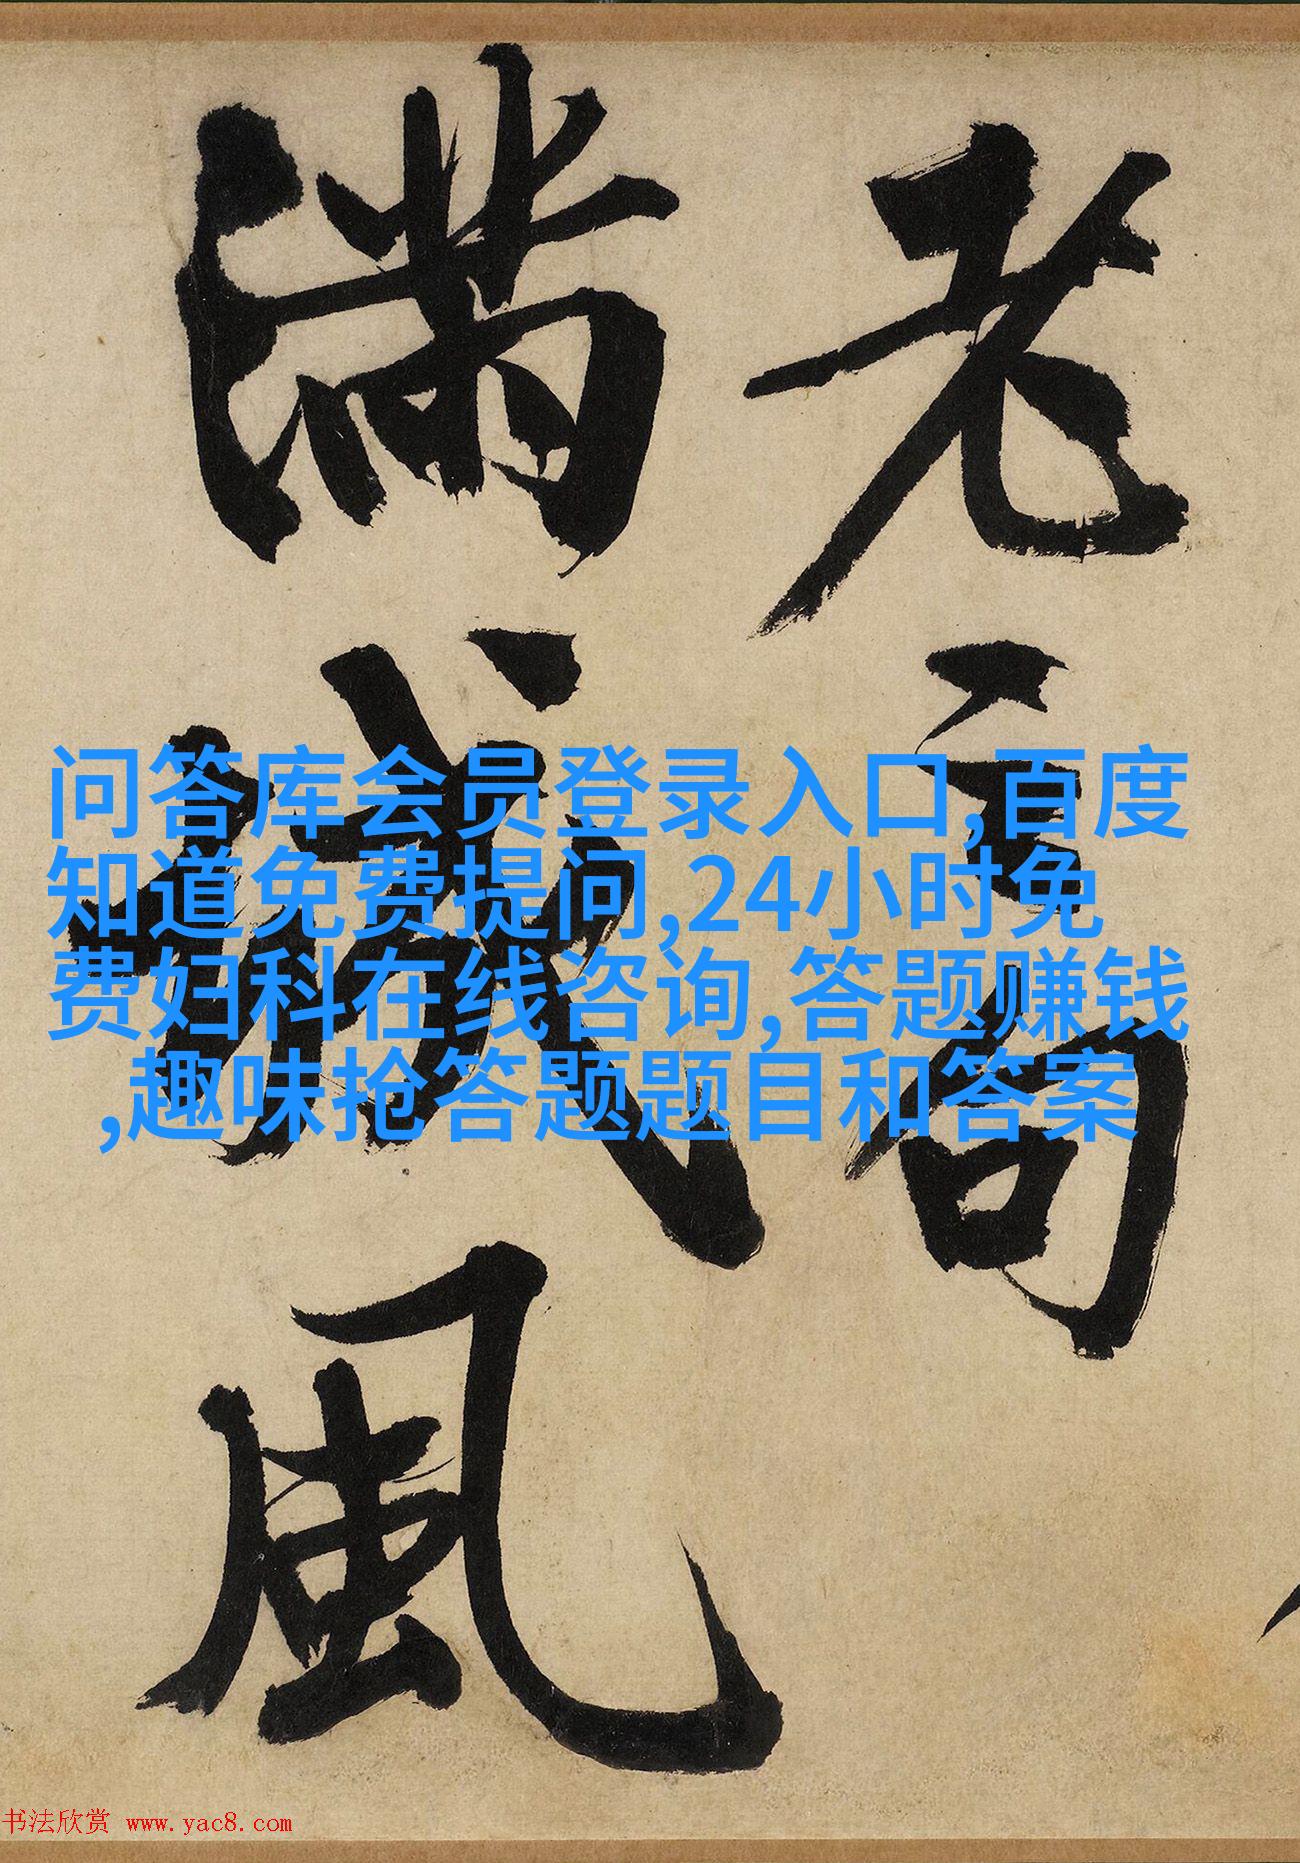 老之句
滿城風
问答库会员登录入口,百度
知道免费提问,24小时免
费妇科在线咨询,答题赚钱
,趣味抢答题题目和答案
书法欣赏 www.yac8.com